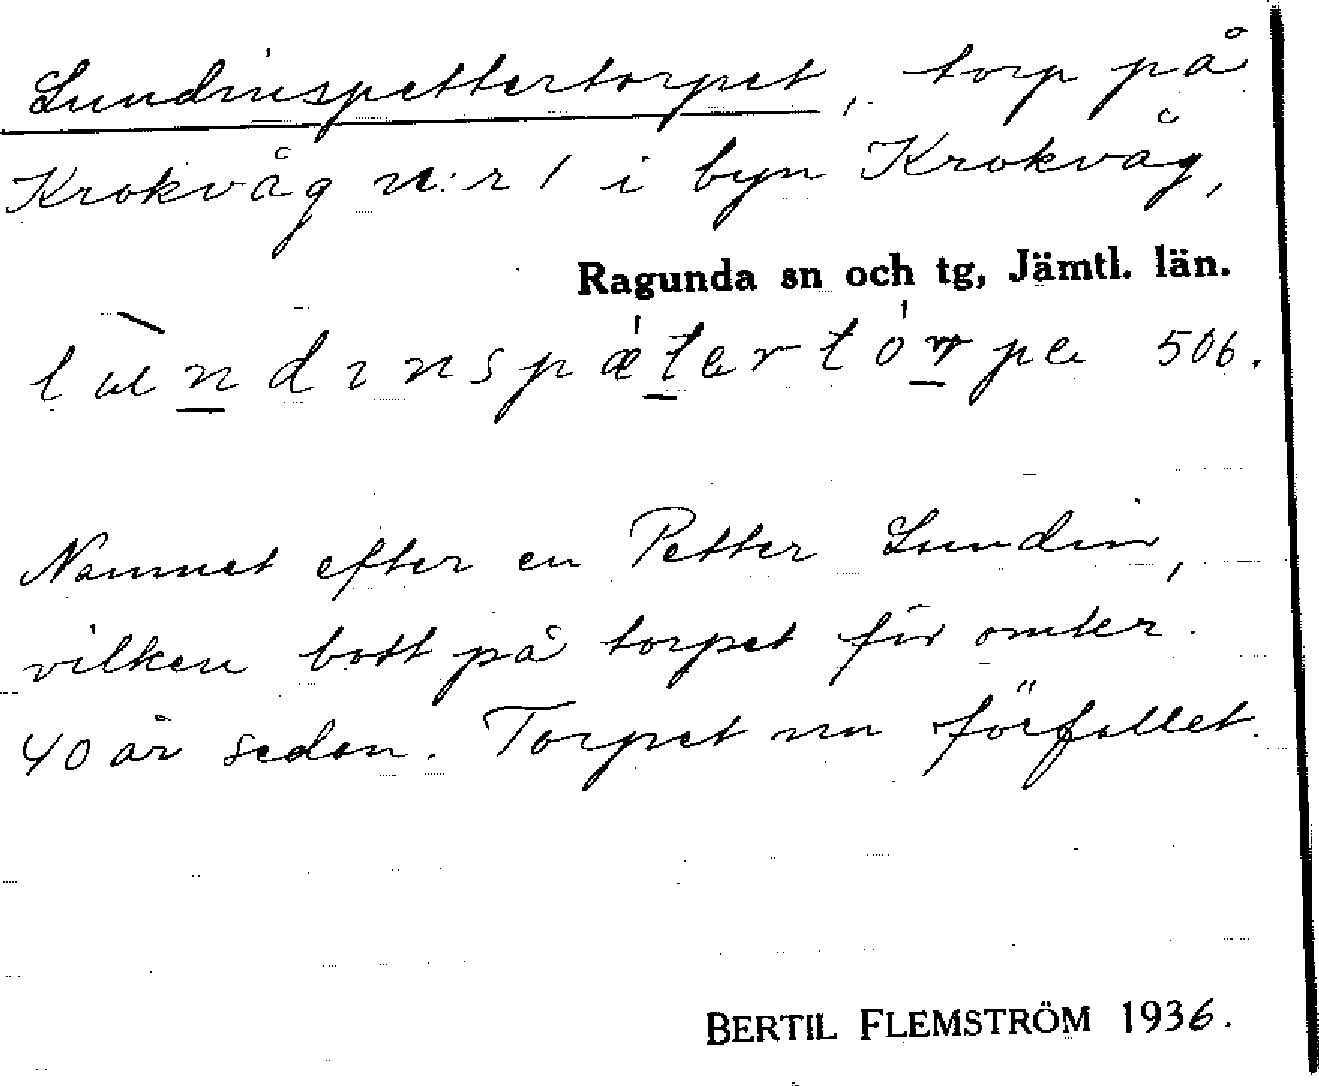 Lundinspettertorpet, torp på
Krokvåg n:r 1 i byn Krokvåg,
Ragunda sn och tg, Jämtl. län.
506.
Namnet efter en Petter Lundin,
vilken bott på torpet för omkr.
40 år sedan. Torpet nu förfallet.
BERTIL FLEMSTRÖM 1936.